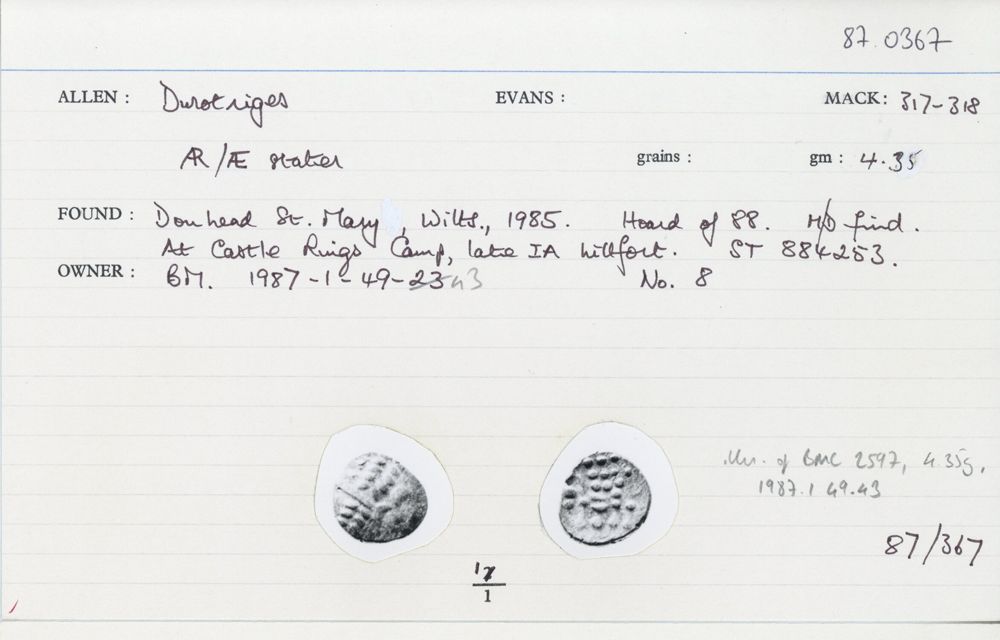 87.0367
ALLEN : Durotriges EVANS : MACK: 317-318
AR/Æ stater grains : gm : 4.35
FOUND : Donhead St. Mary, Wilts., 1985. Hoard of 88. M/D find.
At Castle Rings Camp, late IA hillfort. ST 884253.
OWNER : BM. 1987-1-49-23 43 No. 8
of BMC 2597, 4.35g,
1987.1 49.43
87/367
1
1